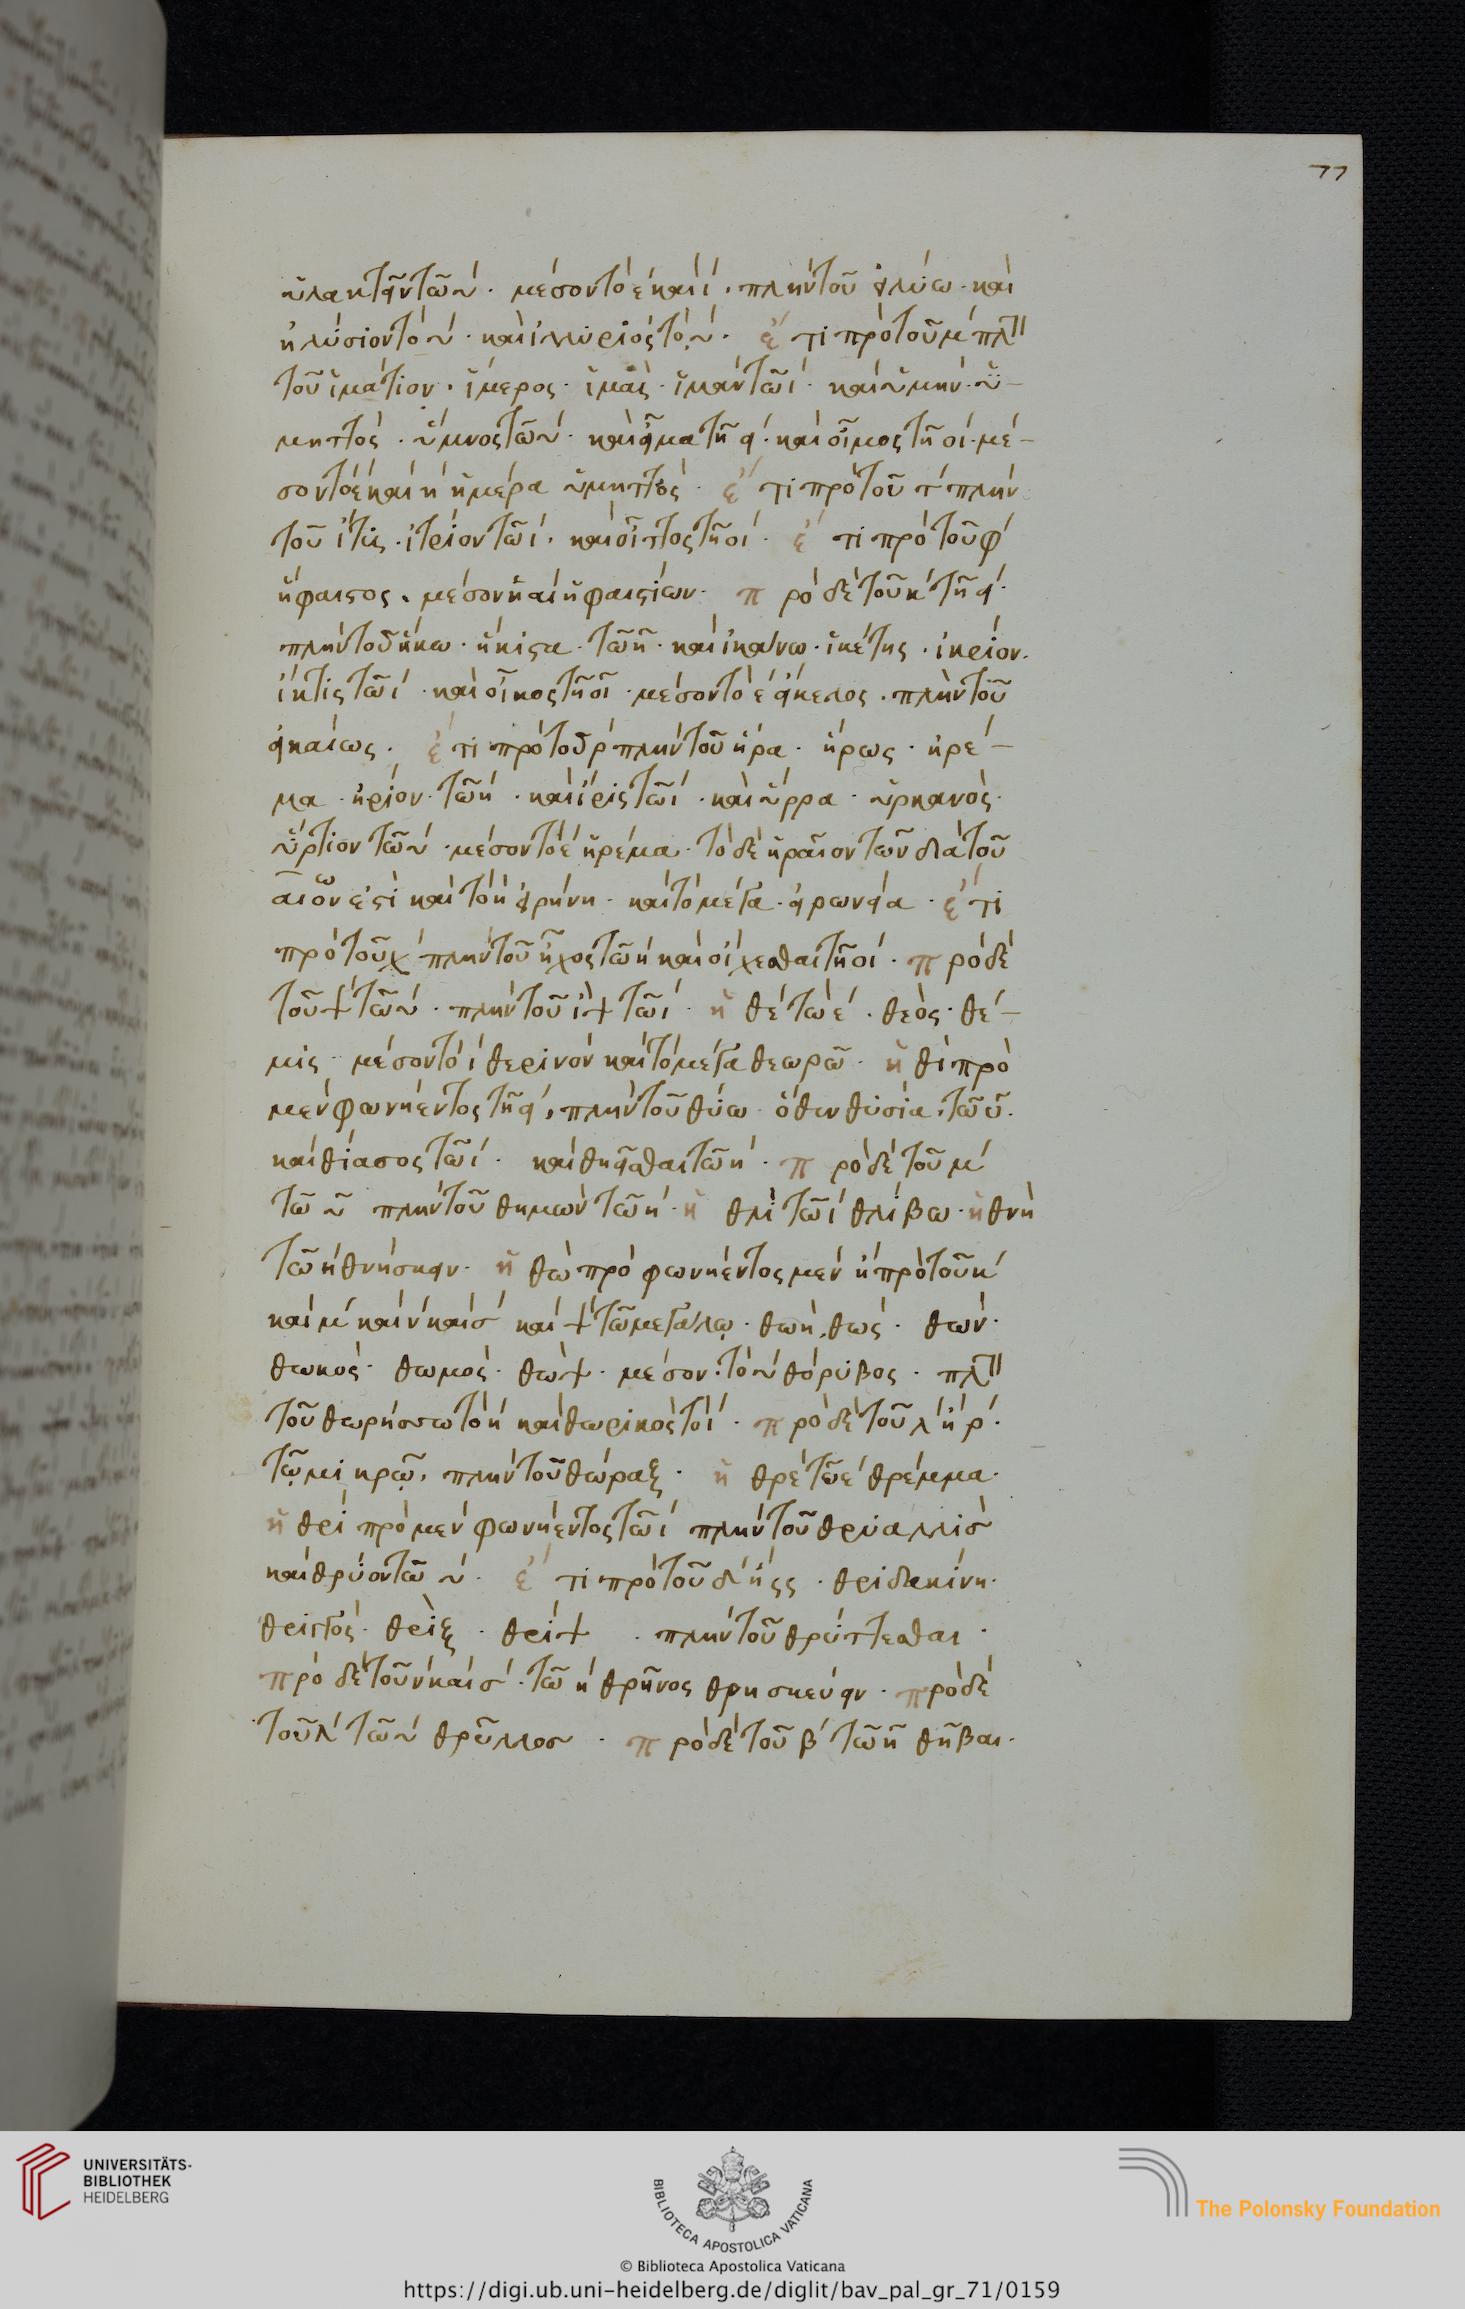 77
ὑλακτεῖν τῶ υ´. μέσον τὸ ε´ καὶ ι´. πλὴν τοῦ εἰλύω. καὶ
ἠλύσιον τὸ υ´. καὶ ἰλλυριὸς τὸ υ´. ἔτι πρὸ τοῦ μ´ πλὴν
τοῦ ἱμάτιον. ἵμερος. ἱμὰς. ἱμάντ τῶ ι´. καὶ ὑμὴν. ὑ-
μηττὸς. ὕμνος τῶ υ´. καὶ εἷμα τῆ ει´. καὶ οἶμος τῆ οι´. μέ-
σον τὸ ε´ καὶ η´ ἡμέρα ὑμηττὸς. ἔτι πρὸ τοῦ τ´ πλὴν
τοῦ ἴτυς. ἰτρίον τῶ ι´. καὶ οἶπτος τῆ οι´. ἔτι πρὸ τοῦ φ´
ἥφαιστος. μέσον ἡ αι ἡφαιστίων. πρὸ δὲ τοῦ κ´ τῆ ει´.
πλὴν τοῦ ἥκω. ἥκιστα. τῶ η. καὶ ἱκάνω. ἱκέτης. ἰκρίον.
ἴκτις τῶ ι´. καὶ οἶκος τῆ οι. μέσον τὸ ε´ εἴκελος. πλὴν τοῦ
εἰκαίως. ἔτι πρὸ τοῦ ρ´ πλὴν τοῦ ἥρα. ἥρως. ἠρέ-
μα. ἠρίον. τῶ η´. καὶ ἶρις τῶ ι´. καὶ ὕρρα. ὑρκανὸς.
ὕρτιον τῶ υ´. μέσον τὸ ε´ ἠρέμα. τὸ δὲ ἡραῖον τῶν διὰ τοῦ
αιόν ἐστὶ καὶ τὸ η εἰρήνη. καὶ τὸ μέγα. εἰρωνεία. ἔτι
πρὸ τοῦ χ´ πλὴν τοῦ ἦχος τῶ η´ καὶ οἴχεσθαι τῆ οι´. πρὸ δὲ
τοῦ ψ´ τῶ υ´. πλὴν τοῦ ἲψ τῶ ι´. ἡ θέ τὼ ε´. θεὸς. θέ-
μις. μέσον τὸ ι´ θερινὸν καὶ τὸ μέγα θεωρῶ. ἡ θι πρὸ
μὲν φωνήεντος τῆ ει´, πλὴν τοῦ θύω. ὅθεν θυσία. τῶ υ.
καὶ θίασος τῶ ι´. καὶ θηεῖσθαι τῶ η´. πρὸ δὲ τοῦ μ´
τῶ υ πλὴν τοῦ θημὼν τῶ η´. ἡ θλὶ τῶ ι´ θλίβω. ἡ θνὴ
τῶ η´ θνήσκειν. ἡ θὼ πρὸ φωνήεντος μὲν ἢ πρὸ τοῦ κ´
καὶ μ´ καὶ ν´ καὶ σ´ καὶ ψ´ τῶ μεγάλῳ. θωὴ, θὼς. θων.
θωκὸς. θωμὸς. θὼψ. μέσον. τὸ υ θόρυβος. πλὴν
τοῦ θωρήσσω τὸ η´ καὶ θωρικὸς τὸ ι´. πρὸ δὲ τοῦ λ´ ἢ ρ´.
τῷ μικρῷ, πλὴν τοῦ θώραξ. ἡ θρέ τῶ ε´ θρέμμα.
ἡ θρί πρὸ μὲν φωνήεντος τῶ ι´ πλὴν τοῦ θρυαλλὶσ
καὶ θρύον τῶ υ. ἔτι πρὸ τοῦ δ´ ἢ γγ. θριδακίνη.
θριγγὸς. θρὶξ. θρίψ. πλὴν τοῦ θρύπτεσθαι.
πρὸ δὲ τοῦ ν´ καὶ σ´. τῶ η´ θρῆνος θρησκεύειν. πρὸ δὲ
τοῦ λ´ τῶ υ´ θρῦλλοσ. πρὸ δὲ τοῦ β´ τῶ η θῆβαι.
UNIVERSITÄTS-
BIBLIOTHEK
HEIDELBERG
BIBLIOTECA APOSTOLICA VATICANA
The Polonsky Foundation
© Biblioteca Apostolica Vaticana
https://digi.ub.uni-heidelberg.de/diglit/bav_pal_gr_71/0159